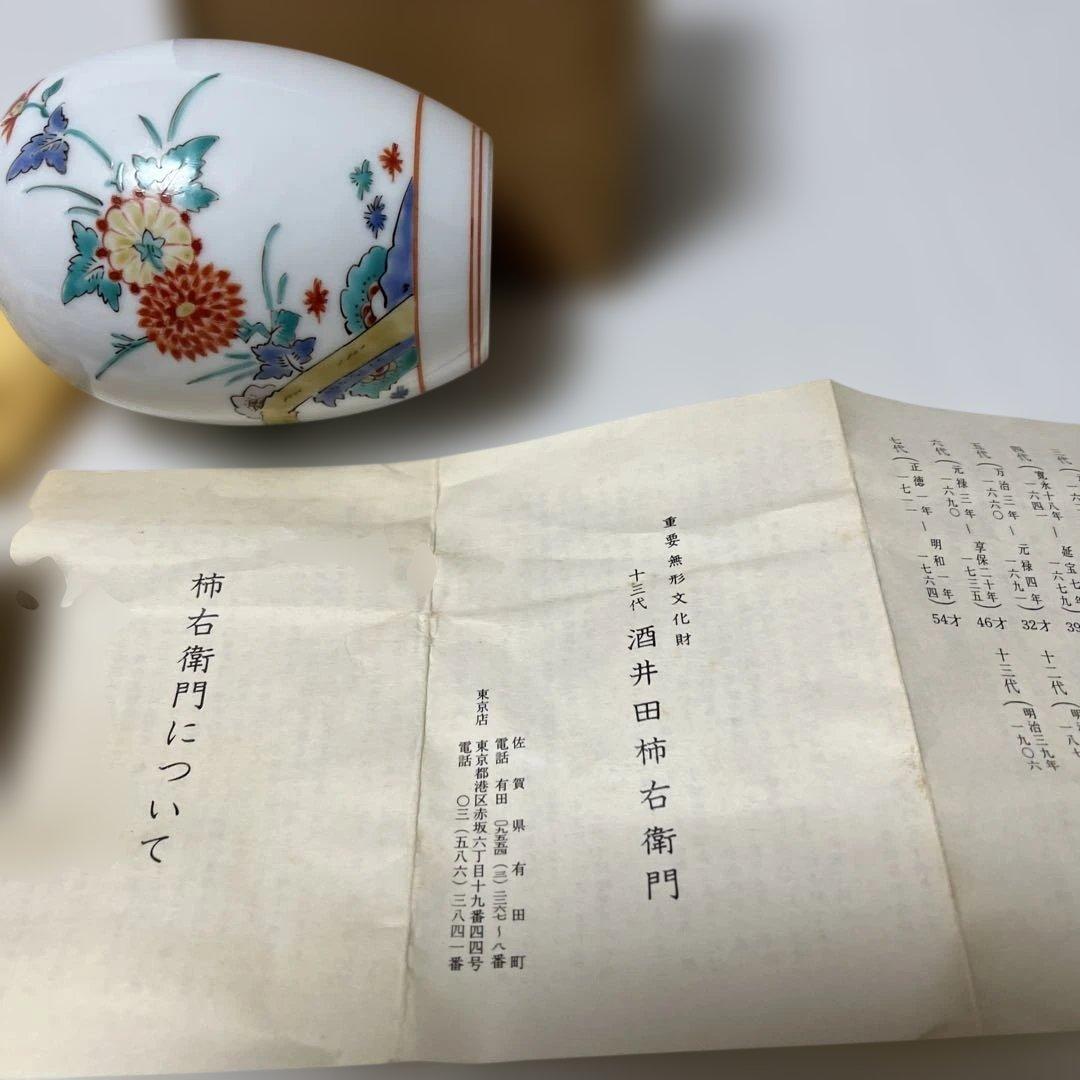 柿右衛門について
重要無形文化財
十三代 酒井田柿右衛門
佐賀県有田町
電話 有田 〇九五五四(三)二二六七〜八番
東京店 東京都港区赤坂六丁目十九番四四号
電話 〇三(五八六)三八四一番
三代
延宝七年
一六七九)
39
四代 (寛永十八年ー元禄四年) 32才
一六四一 一六九一
五代 (万治三年ー享保二十年) 46才
一六六〇 一七三五
六代 (元禄三年ー
一六九〇
七代 (正徳一年ー明和一年) 54才
一七一一 一七六四
十二代
十三代 (明治三九年
一九〇六